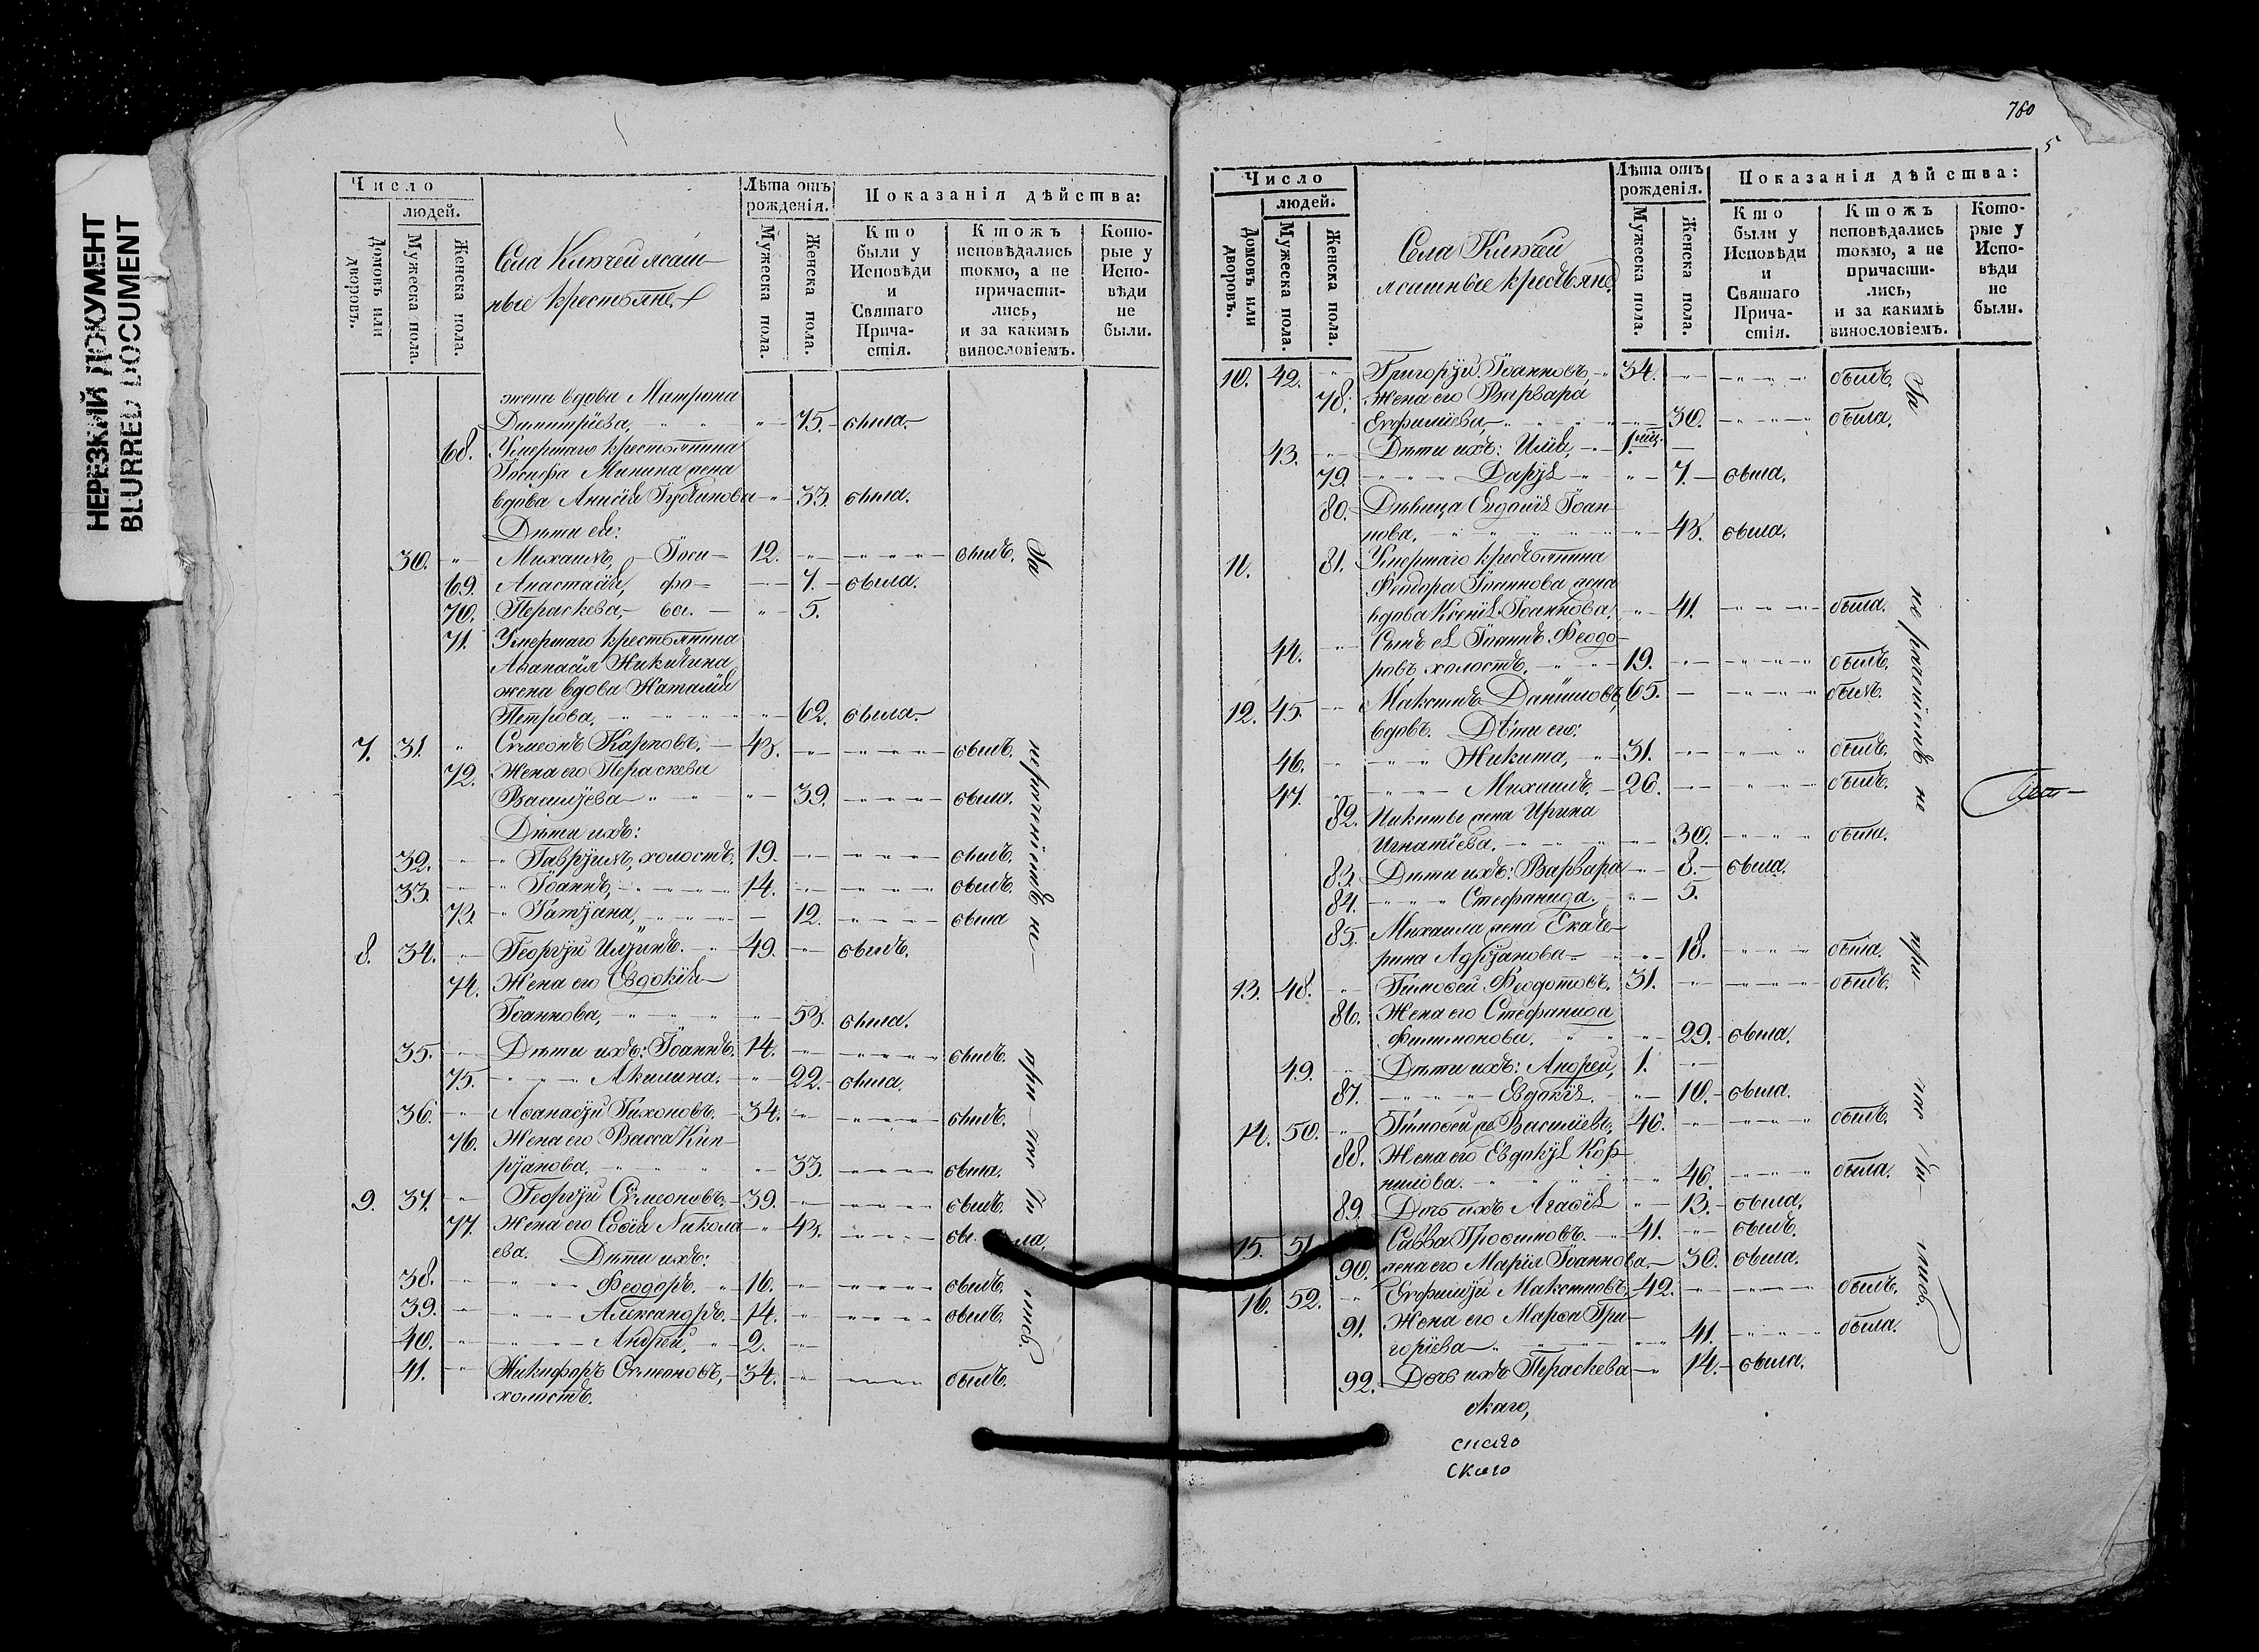 НЕРЕЗКИЙ ДОКУМЕНТ
BLURRED DOCUMENT
Число
людей.
Домовъ или дворовъ.
Мужеска пола.
Женска пола.
Села Кипчей ясаш-
ные крестьяне
Лѣта отъ рожденія.
Мужеска пола.
Женска пола.
Показанія дѣйства:
Кто были у Исповѣди и Святаго Прича-стія.
Ктожъ исповѣдались токмо, а не причасти-лись, и за какимъ винословіемъ.
Кото-рые у Испо-вѣди не были.
жена вдова Матрона
Димитріева, 75. была.
68. Умершаго крестьянина
Іосифа Минина жена
вдова Анисія 33. была.
Дѣти ея:
30. Михаилъ, Іоси- 12. былъ.
69. Анастасія, фо- 7. была.
70. Параскева, вы. 5.
71. Умершаго крестьянина
Аѳанасія Никитина
жена вдова Наталія
Петрова. 62. была.
7. 31. Сѵмеонъ Карповъ. 43. былъ.
72. Жена его Параскева
Василіева 39. была.
Дѣти ихъ:
32. Гавріилъ, холостъ. 19. былъ.
33. Іоаннъ, 14. былъ.
73. Татіана, 12. была
8. 34. Георгій Иліинъ. 49. былъ.
74. Жена его Евдокія
Іоаннова, 53. была.
35. Дѣти ихъ: Іоаннъ. 14. былъ.
75. Акилина. 22. была.
36. Аѳанасій Тихоновъ. 34. былъ.
76. Жена его Васса Кип-
ріанова. 33. была.
9. 37. Георгій Сѵмеоновъ. 39. былъ.
77. Жена его Софія Никола- 43. была.
ева. Дѣти ихъ:
38. Феодоръ. 16. былъ.
39. Александръ. 14. былъ.
40. Андрей, 2.
41. Никифоръ Сѵмеоновъ, 34. былъ.
холостъ.
За нераченіемъ не при-
780
5
Число
людей.
Домовъ или дворовъ.
Мужеска пола.
Женска пола.
Села Кипчей
ясашные крестьяне.
Лѣта отъ рожденія.
Мужеска пола.
Женска пола.
Показанія дѣйства:
Кто были у Исповѣди и Святаго Прича-стія.
Ктожъ исповѣдались токмо, а не причасти-лись, и за какимъ винословіемъ.
Кото-рые у Испо-вѣди не были.
10. 42. Григорій Іоанновъ, 34. былъ.
78. Жена его Варвара
Евфиміева, 30. была.
43. Дѣти ихъ: Илія, 1.
79. Дарія 7. была.
80. Дѣвица Евдокія Іоан-
нова, 43. была.
11. 81. Умершаго крестьянина
Феодора Іоаннова жена
вдова Ксенія Іоаннова. 41. была.
44. Сынъ ея Іоаннъ Феодо-
ровъ холостъ. 19. былъ.
12. 45. Максимъ Даніиловъ, 65. былъ.
вдовъ. Дѣти его:
46. Никита, 31. былъ.
47. Михаилъ. 26. былъ.
82. Никиты жена Ирина
Игнатіева. 30. была.
83. Дѣти ихъ: Варвара 8. была.
84. Стефанида. 5.
85. Михаила жена Екате-
рина Адріанова 18. была.
13. 48. Тимоѳей Феодотовъ. 31. былъ.
86. Жена его Стефанида
Филимонова. 29. была.
49. Дѣти ихъ: Андрей, 1.
87. Евдокія. 10. была.
14. 50. Тимоѳей Василіевъ, 46. былъ.
88. Жена его Евдокія Кор-
нилова. 46. была.
89. Дочь ихъ Агаѳія 13. была.
15. 51. Савва Трофимовъ. 41. былъ.
90. жена его Марія Іоаннова 36. была.
16. 52. Евфимій Максимовъ, 42. былъ.
91. Жена его Марѳа Гри-
горіева 41. была.
92. Дочь ихъ Параскева 14. была.
За нераченіемъ не при- час ти- лись.
скаго,
скаго
скаго